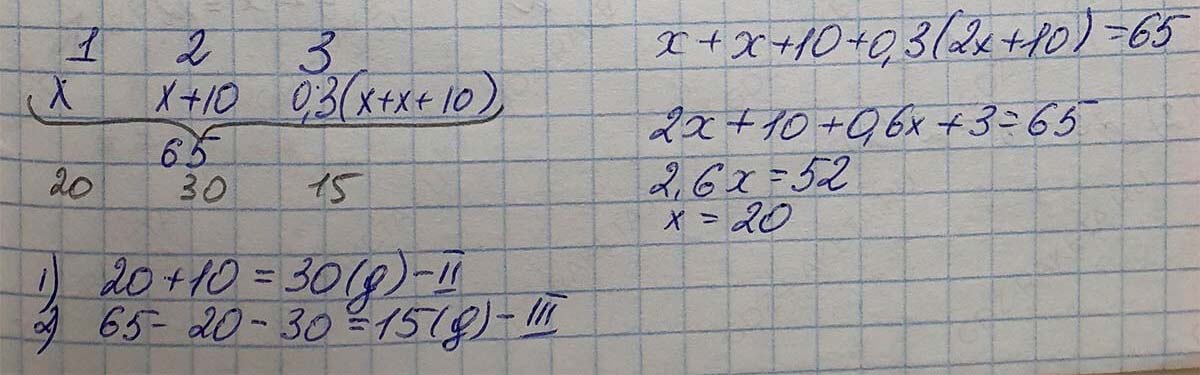 1 2 3
x x+10 0,3(x+x+10)
65
20 30 15
1) 20+10=30(g)-II
2) 65-20-30=15(g)-III
x+x+10+0,3(2x+10)=65
2x+10+0,6x+3=65
2,6x=52
x=20